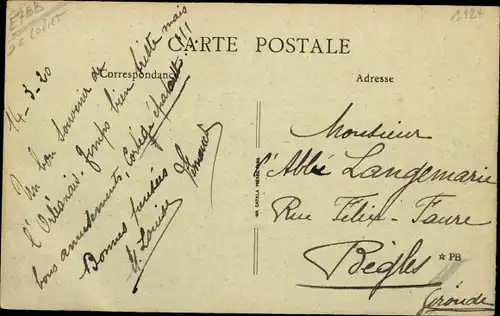 CARTE POSTALE
Correspondance
Adresse
14-3-20
Un bon souvenir de
l'Orléanais. Temps bien triste mais
bons amusements, Cortège épatant!!!
Bonnes pensées
Monsieur
l'Abbé Langemarie
Rue Félix-Faure
Bègles
Gironde
IMP. CATALA FRÈRES, PARIS
★ PB